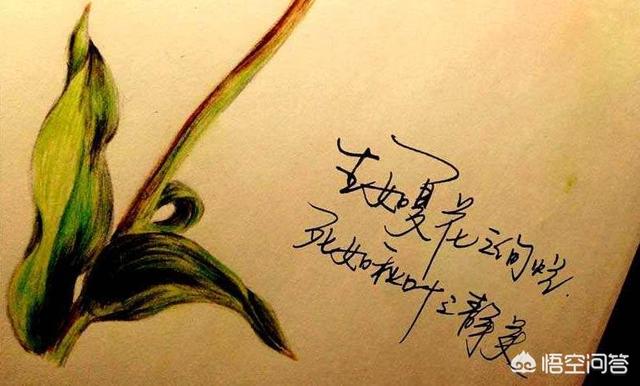 生如夏花之绚烂.
死如秋叶之静美
悟空问答